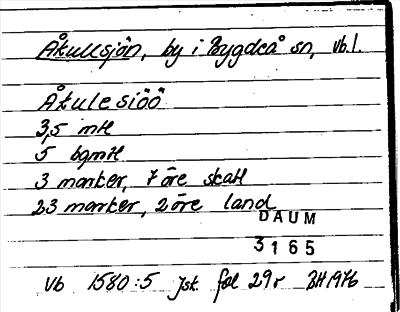 Åkullsjön, by i Bygdeå sn, vb.l.
Åkulesiöö
3,5 mtl
5 bgmtl
3 marker, 7 öre skatt
23 marker, 2 öre land
DAUM
3165
Vb 1580:5 Jsk fol 29r BH 1976